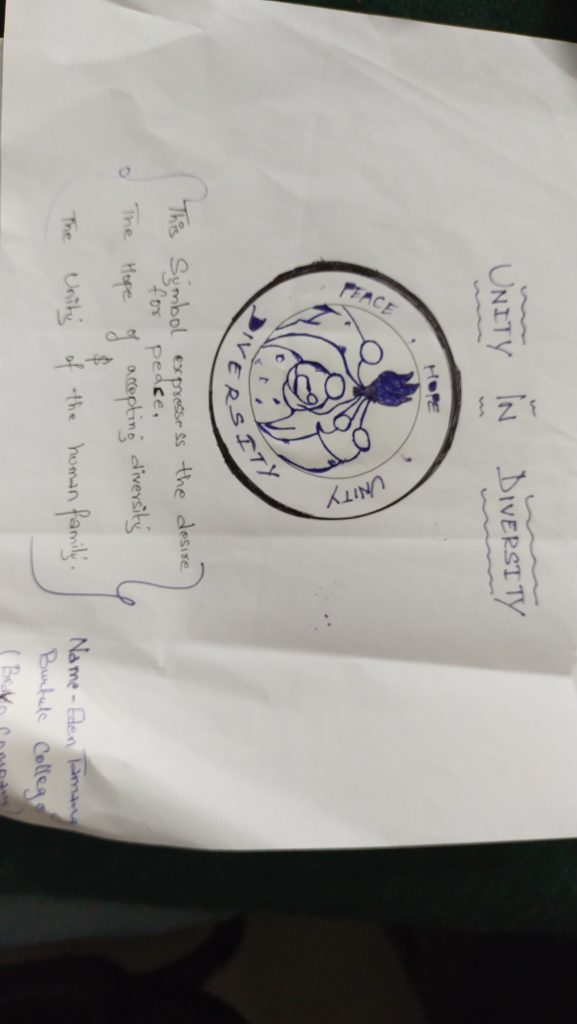 UNITY IN DIVERSITY
HOPE
PEACE
UNITY
DIVERSITY
This Symbol expresses the desire
for peace,
The Hope of accepting diversity
&
The Unity of the human family.
Name - Eden Tamang
College
(Bravo Company)